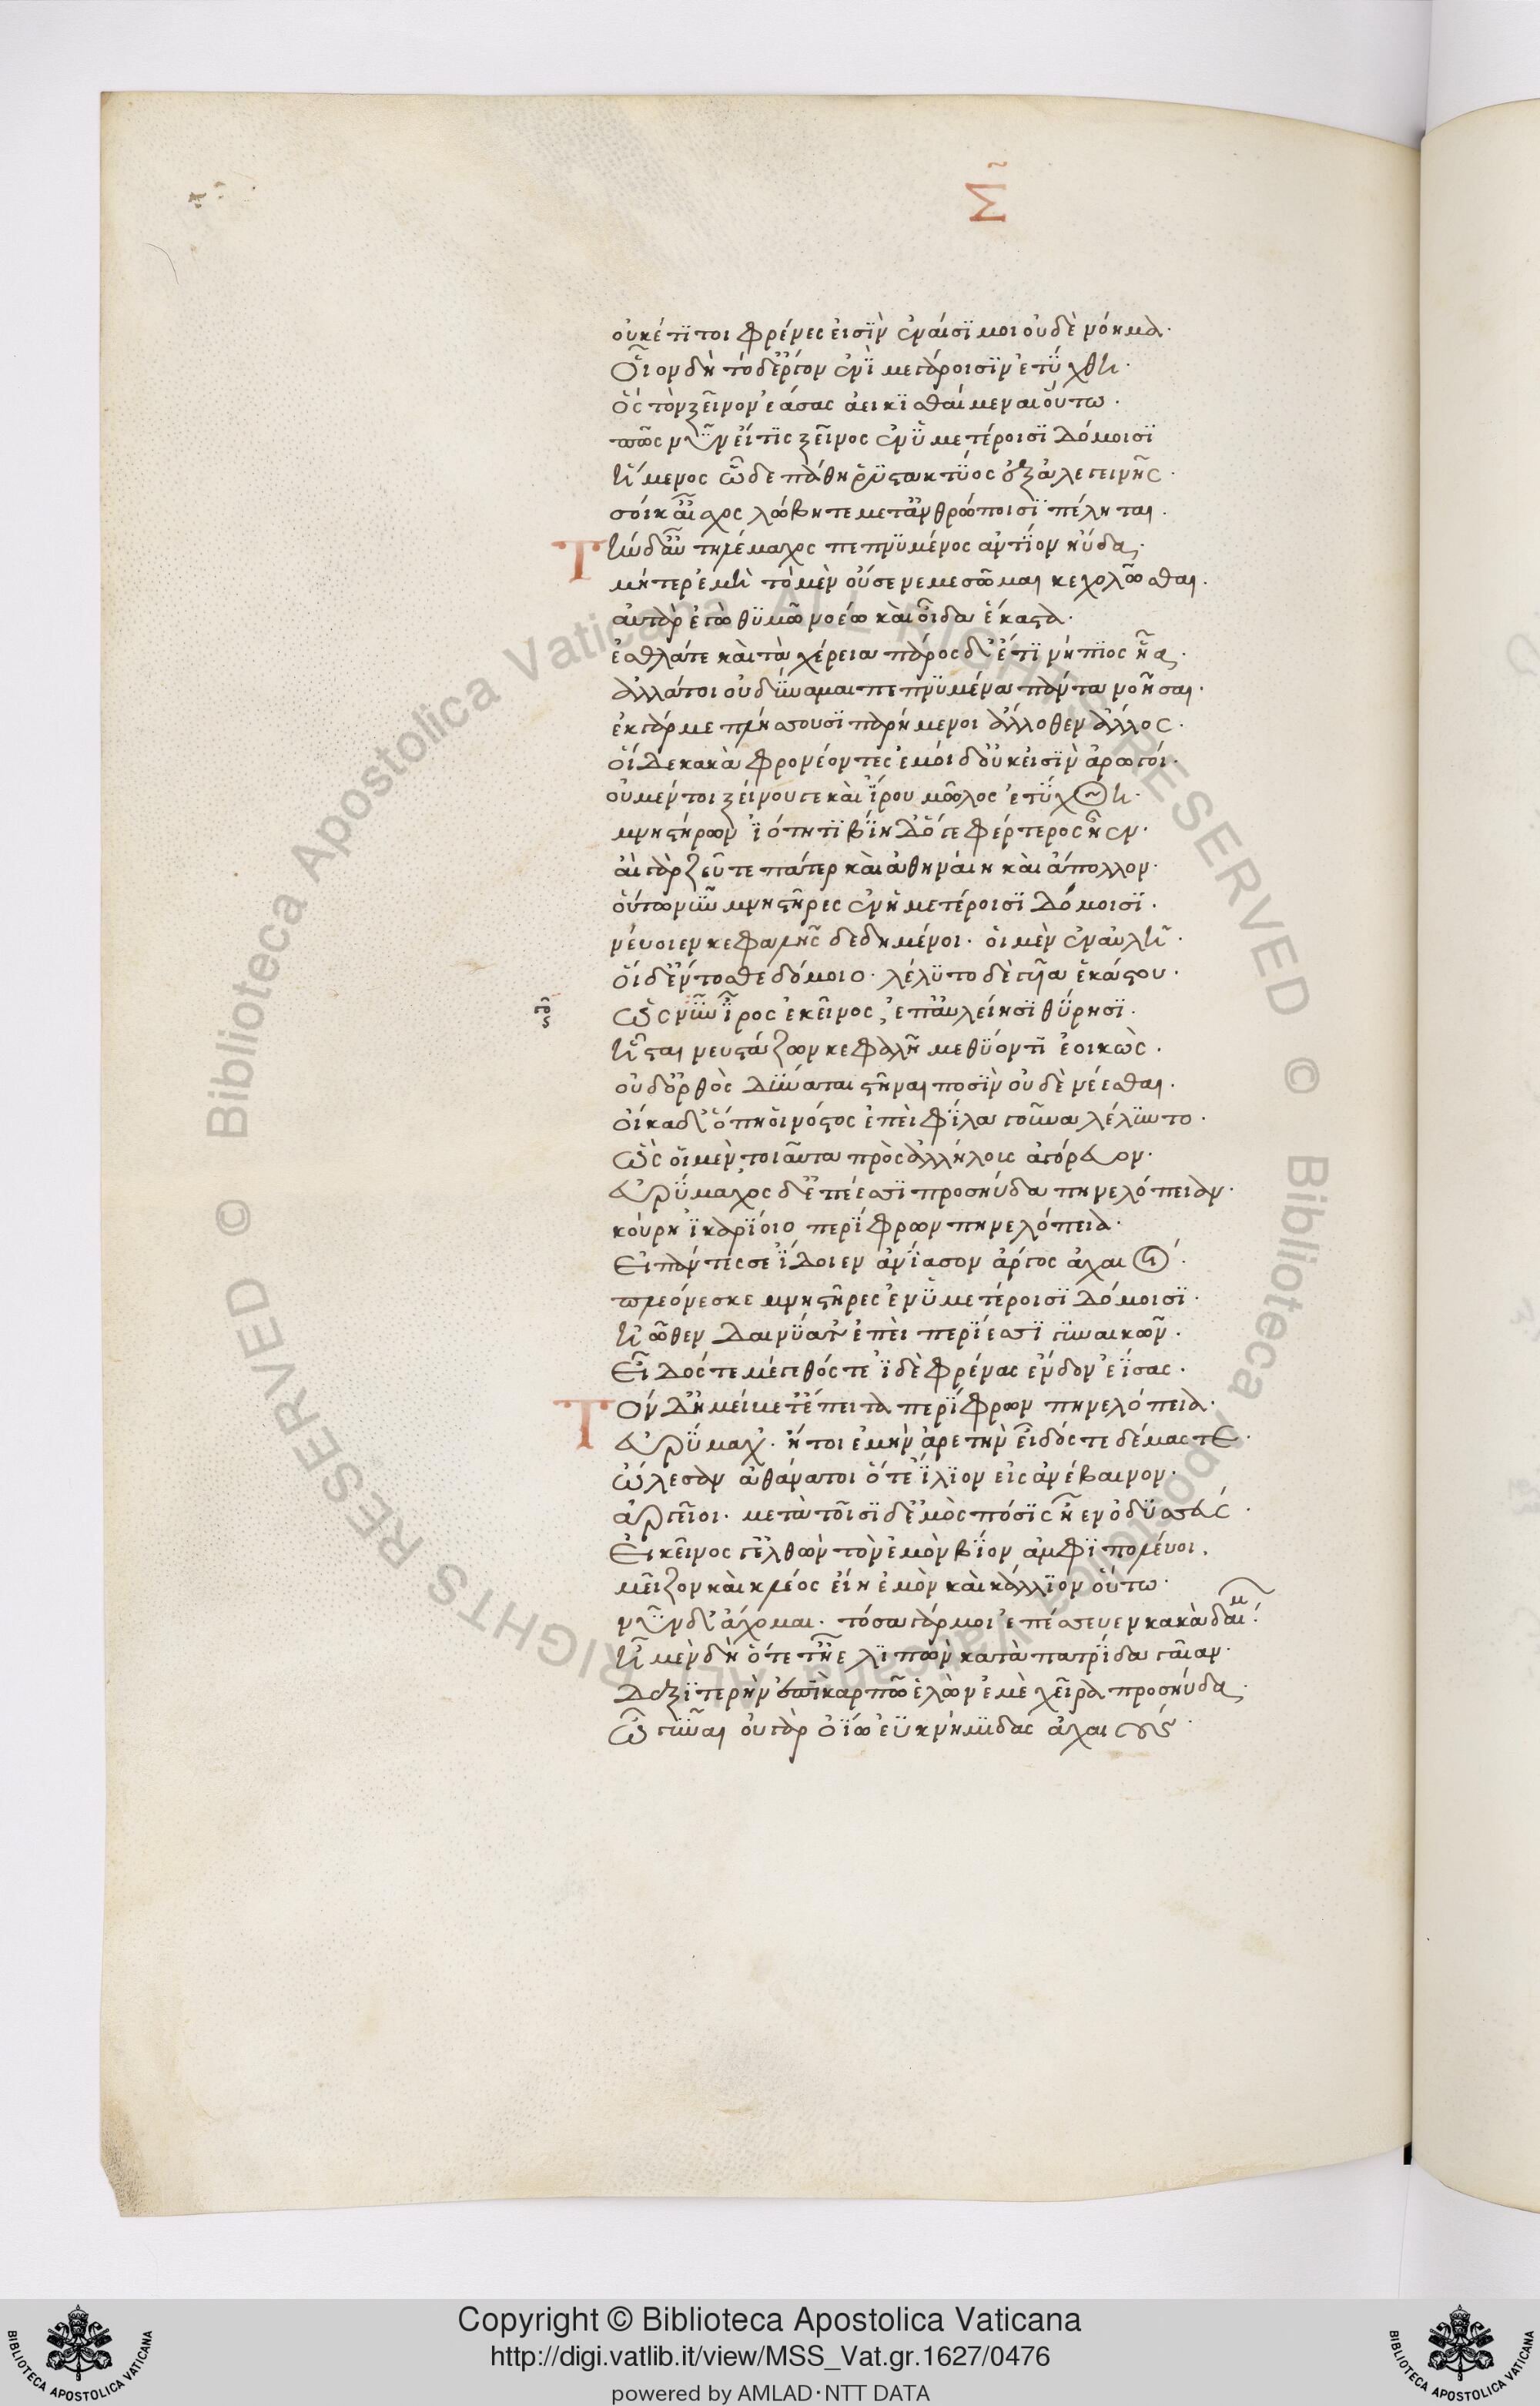 Σ
οὐκέτϊ τοι φρένες εἰσῒν ἐναίσϊμοι οὐδὲ νόημα·
Οἷον δὴ τόδ' ἔργον ἐνῒ μεγάροισϊν ἐτΰχθη·
ὃς τὸν ξεῖνον ἐάσας ἀεικϊσθαίμεναι οὕτω·
πῶς νῦν εἴ τϊς ξεῖνος ἐν ϋμετέροισϊ δόμοισϊ
ἥμενος ὧδε πάθη ῥϋστακτΰος ἐξ ἀλεγεινῆς·
σοί κ' αἶσχος λώβη τε μετ' ἀνθρώποισϊ πέληται·
Τὴν δ' αὖ τηλέμαχος πεπνϋμένος ἀντΐον ηὔδα·
μῆτερ ἐμὴ τὸ μὲν οὔ σε νεμεσῶμαι κεχολῶσθαι·
αὐτὰρ ἐγὼ θϋμῶ νοέω καὶ οἶδα ἕκαστα·
ἐσθλά τε καὶ τὰ χέρεια πάρος δ' ἔτϊ νήπϊος ἦα·
ἀλλά τοι οὐ δύναμαι πεπνϋμένα πάντα νοῆσαι·
ἐκ γάρ με πλήσσουσϊ παρήμενοι ἄλλοθεν ἄλλος·
οἵδε κακὰ φρονέοντες ἐμοὶ δ' οὐκ εἰσῒν ἀρωγοί·
οὐ μέν τοι ξείνου γε καὶ ΐρου μῶλος ἐτΰχθη·
μνηστήρων ϊότητϊ βΐη δ' ὅγε φέρτερος ἦεν·
αἲ γὰρ ζεῦ τε πάτερ καὶ ἀθηναίη καὶ ἄπολλον·
οὕτω νῦν μνηστῆρες ἐν ἡμετέροισϊ δόμοισϊ·
νεύοιεν κεφαλῆς δεδημένοι· οἱ μὲν ἐν αὐλῆ·
οἱ δ' ἔντοσθε δόμοιο· λέλϋτο δὲ γῆα ἑκάστου·
ὡς νῦν ἶρος ἐκεῖνος ἐπ' αὐλείησϊ θΰρησϊ·
ἧσται νευστάζων κεφαλῆ μεθΰοντϊ ἐοικὼς·
οὐδ' ὀρθὸς δύναται στῆναι ποσῒν οὐδὲ νέεσθαι·
οἴκαδ' ὅπη οἱ νόστος ἐπεὶ φΐλα γοῦνα λέλϋντο·
ὣς οἱ μὲν τοιαῦτα πρὸς ἀλλήλους ἀγόρευον·
εὐρΰμαχος δ' ἐπέεσσϊ προσηύδα πηνελόπειαν·
κούρη ϊκαρΐοιο περΐφρων πηνελόπεια·
Εἰ πάντες σε ΐδοιεν ἀνΐασον ἄργος ἀχαιοί·
πλέονές κε μνηστῆρες ἐν ϋμετέροισϊ δόμοισϊ·
ἠῶθεν δαινΰατ' ἐπεὶ περΐεσσϊ γυναικῶν·
Εἶδός τε μέγεθός τε ϊδὲ φρένας ἔνδον ἐΐσας·
Τὸν δ' ἠμείβετ' ἔπειτα περΐφρων πηνελόπεια·
εὐρΰμαχ'· ἤτοι ἐμὴν ἀρετὴν εἶδός τε δέμας τε·
ὤλεσαν ἀθάνατοι ὅτε ΐλϊον εἰσανέβαινον·
ἀργεῖοι· μετὰ τοῖσϊ δ' ἐμὸς πόσϊς ἦεν ὀδϋσσεύς·
Εἰ κεῖνος γ' ἐλθὼν τὸν ἐμὸν βΐον ἀμφϊπολεύοι·
μεῖζον καὶ κλέος εἴη ἐμὸν καὶ κάλλϊον οὕτω·
νῦν δ' ἄχομαι· τόσα γάρ μοι ἐπέσσευεν κακὰ δαίμ·
ἦ μὲν δὴ ὅτε τ' ἦε λϊπὼν κατὰ πατρΐδα γαῖαν·
Δεξϊτερὴν ἐπῒ καρπῶ ἑλὼν ἐμὲ χεῖρα προσηύδα·
Ὦ γύναι οὐ γὰρ ὀΐω ἐϋκνήμϊδας ἀχαιούς·
Copyright © Biblioteca Apostolica Vaticana
http://digi.vatlib.it/view/MSS_Vat.gr.1627/0476
powered by AMLAD·NTT DATA